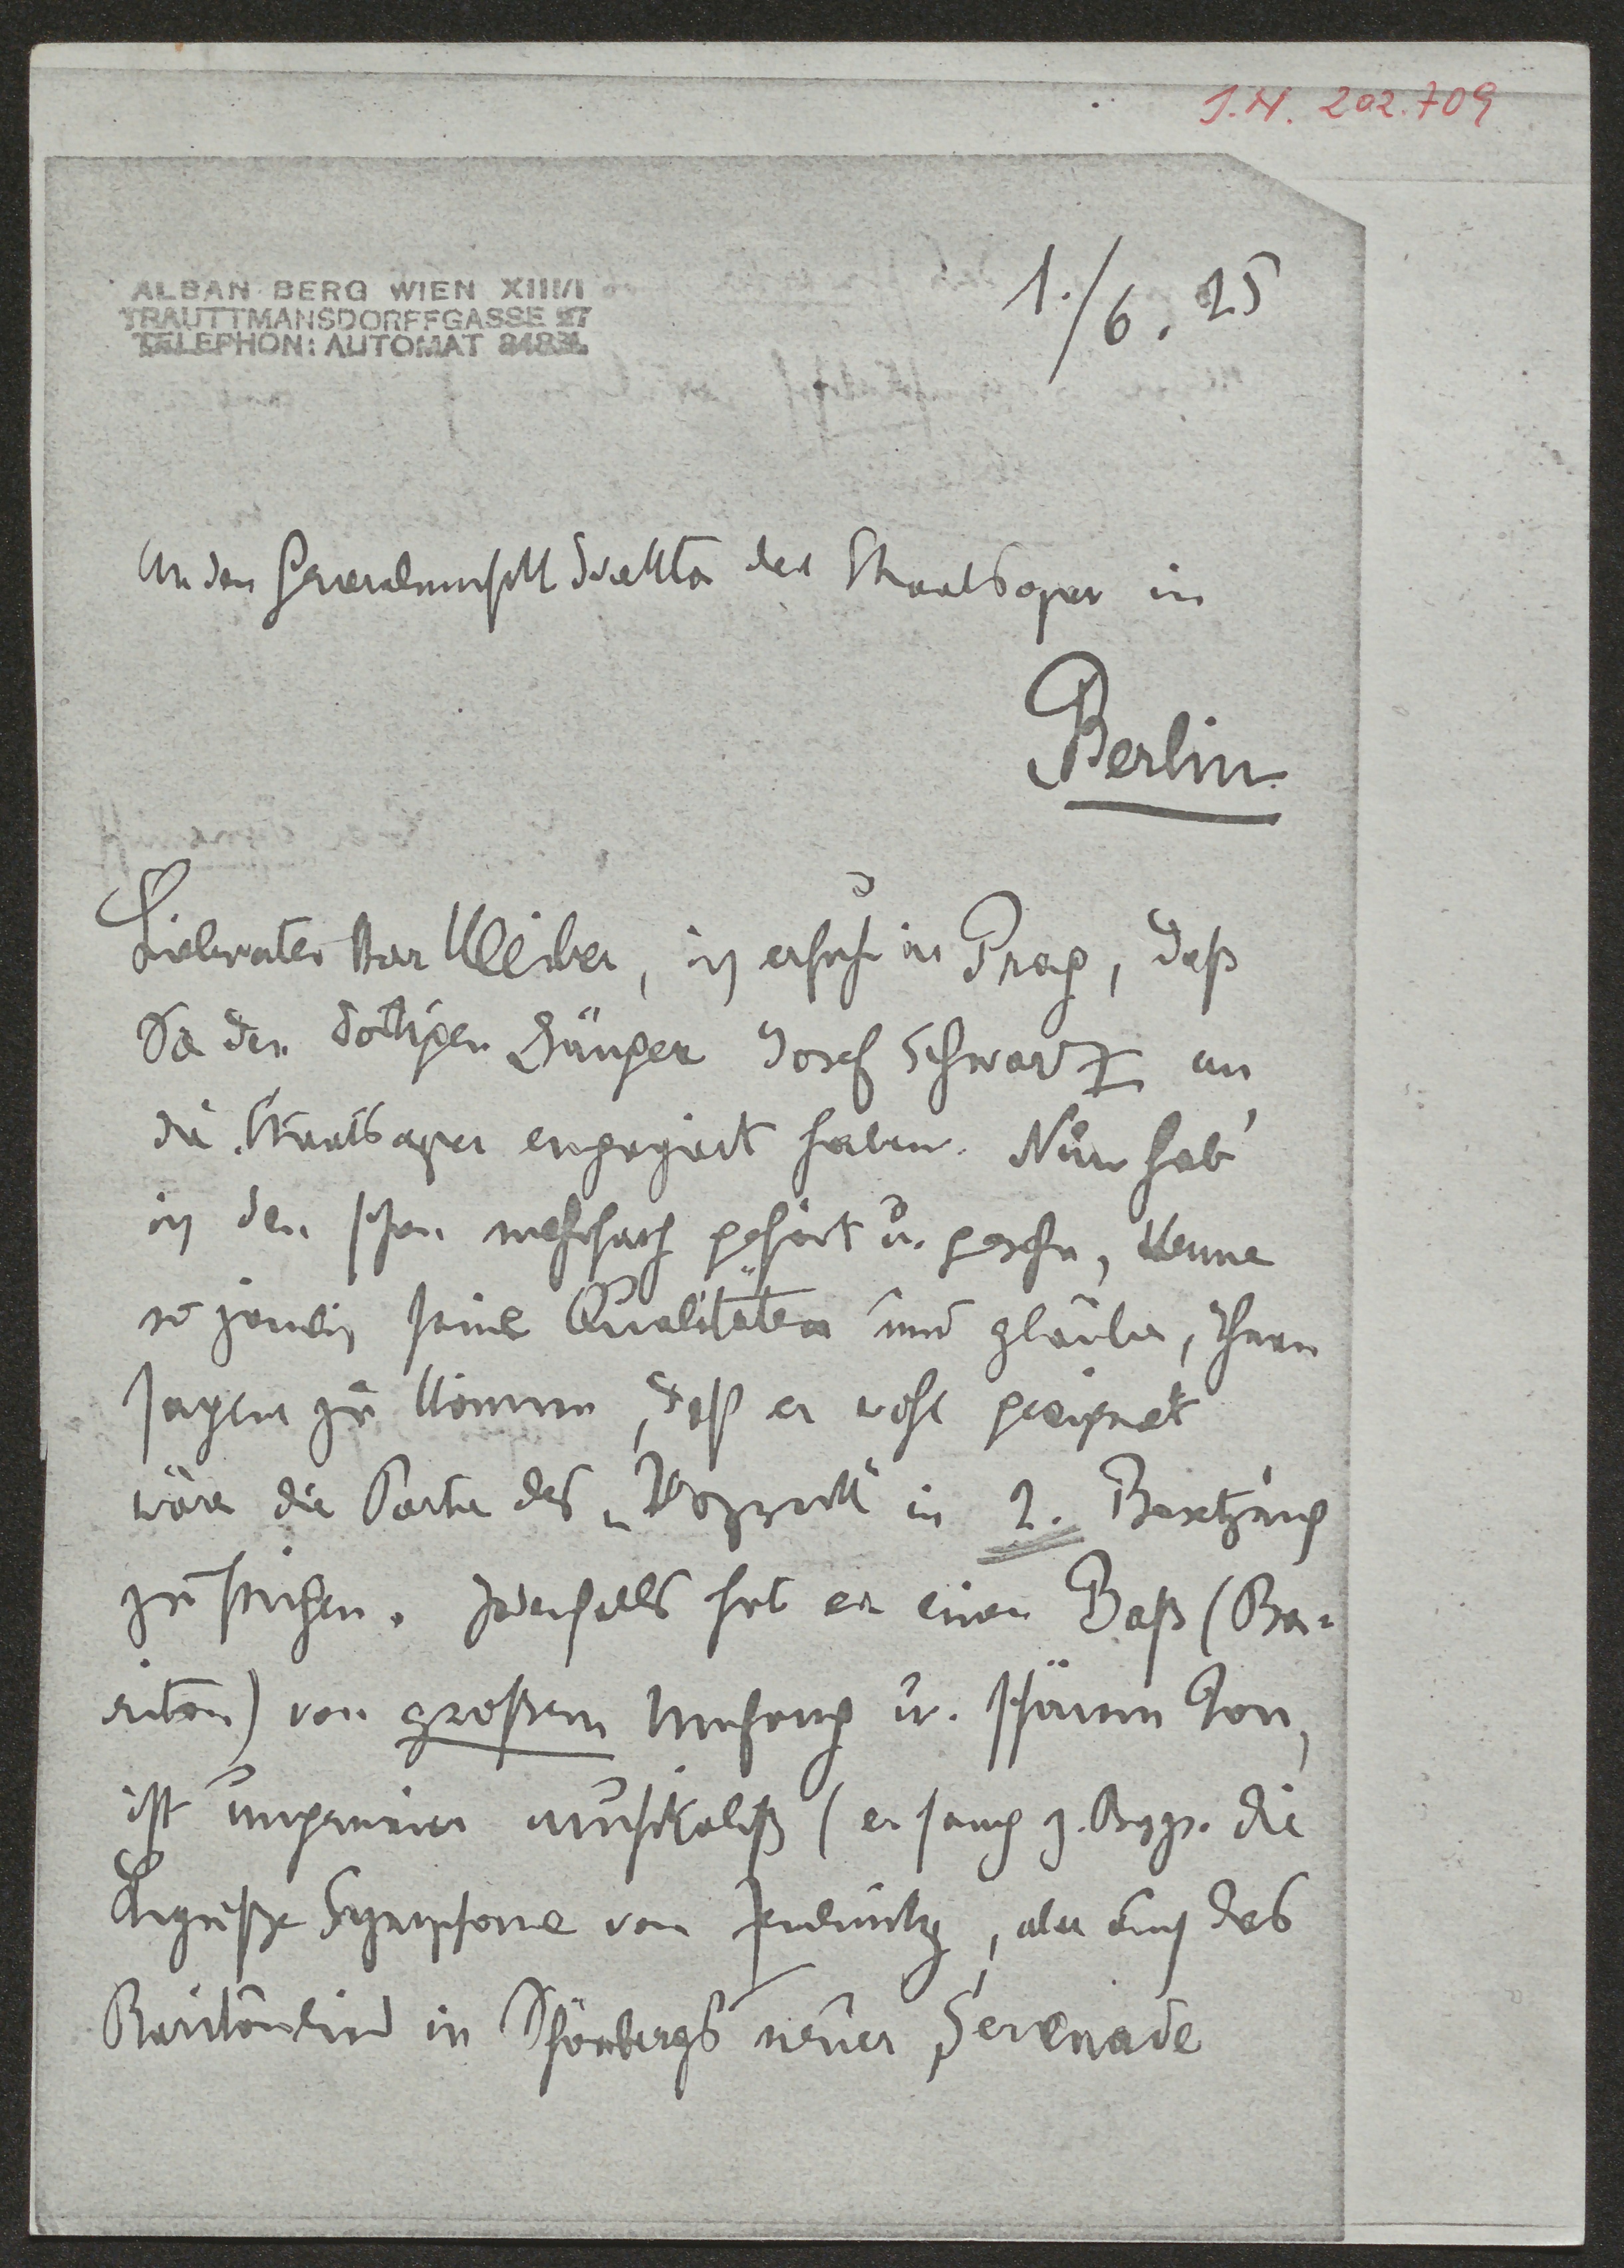 I.N. 202.709
ALBAN BERG WIEN XIII/1
TRAUTTMANSDORFFGASSE 27
TELEPHON: AUTOMAT 84831
1./6. 25
An den Generalmusikdirektor der Staatsoper in
Berlin
Liebwerter Herr Kleiber, ich erfuhr in Prag, daß
Sie den dortigen Sänger Josef Schwarz an
die Staatsoper engagiert haben. Nun hab'
ich den schon mehrfach gehört u. gesehn, kenne
so ziemlich seine Qualitäten und glaube, Ihnen
sagen zu können, daß er wohl geeignet
wäre die Partie des „Wozzeck" in 2. Besetzung
zu singen. Jedenfalls hat er einen Baß (Ba-
riton) von großem Umfang u. schönem Ton,
ist ungemein musikalisch (er sang z. Bsp. die
Lyrische Symphonie von Zemlinsky, aber auch das
Baritonlied in Schönbergs neuer Serenade